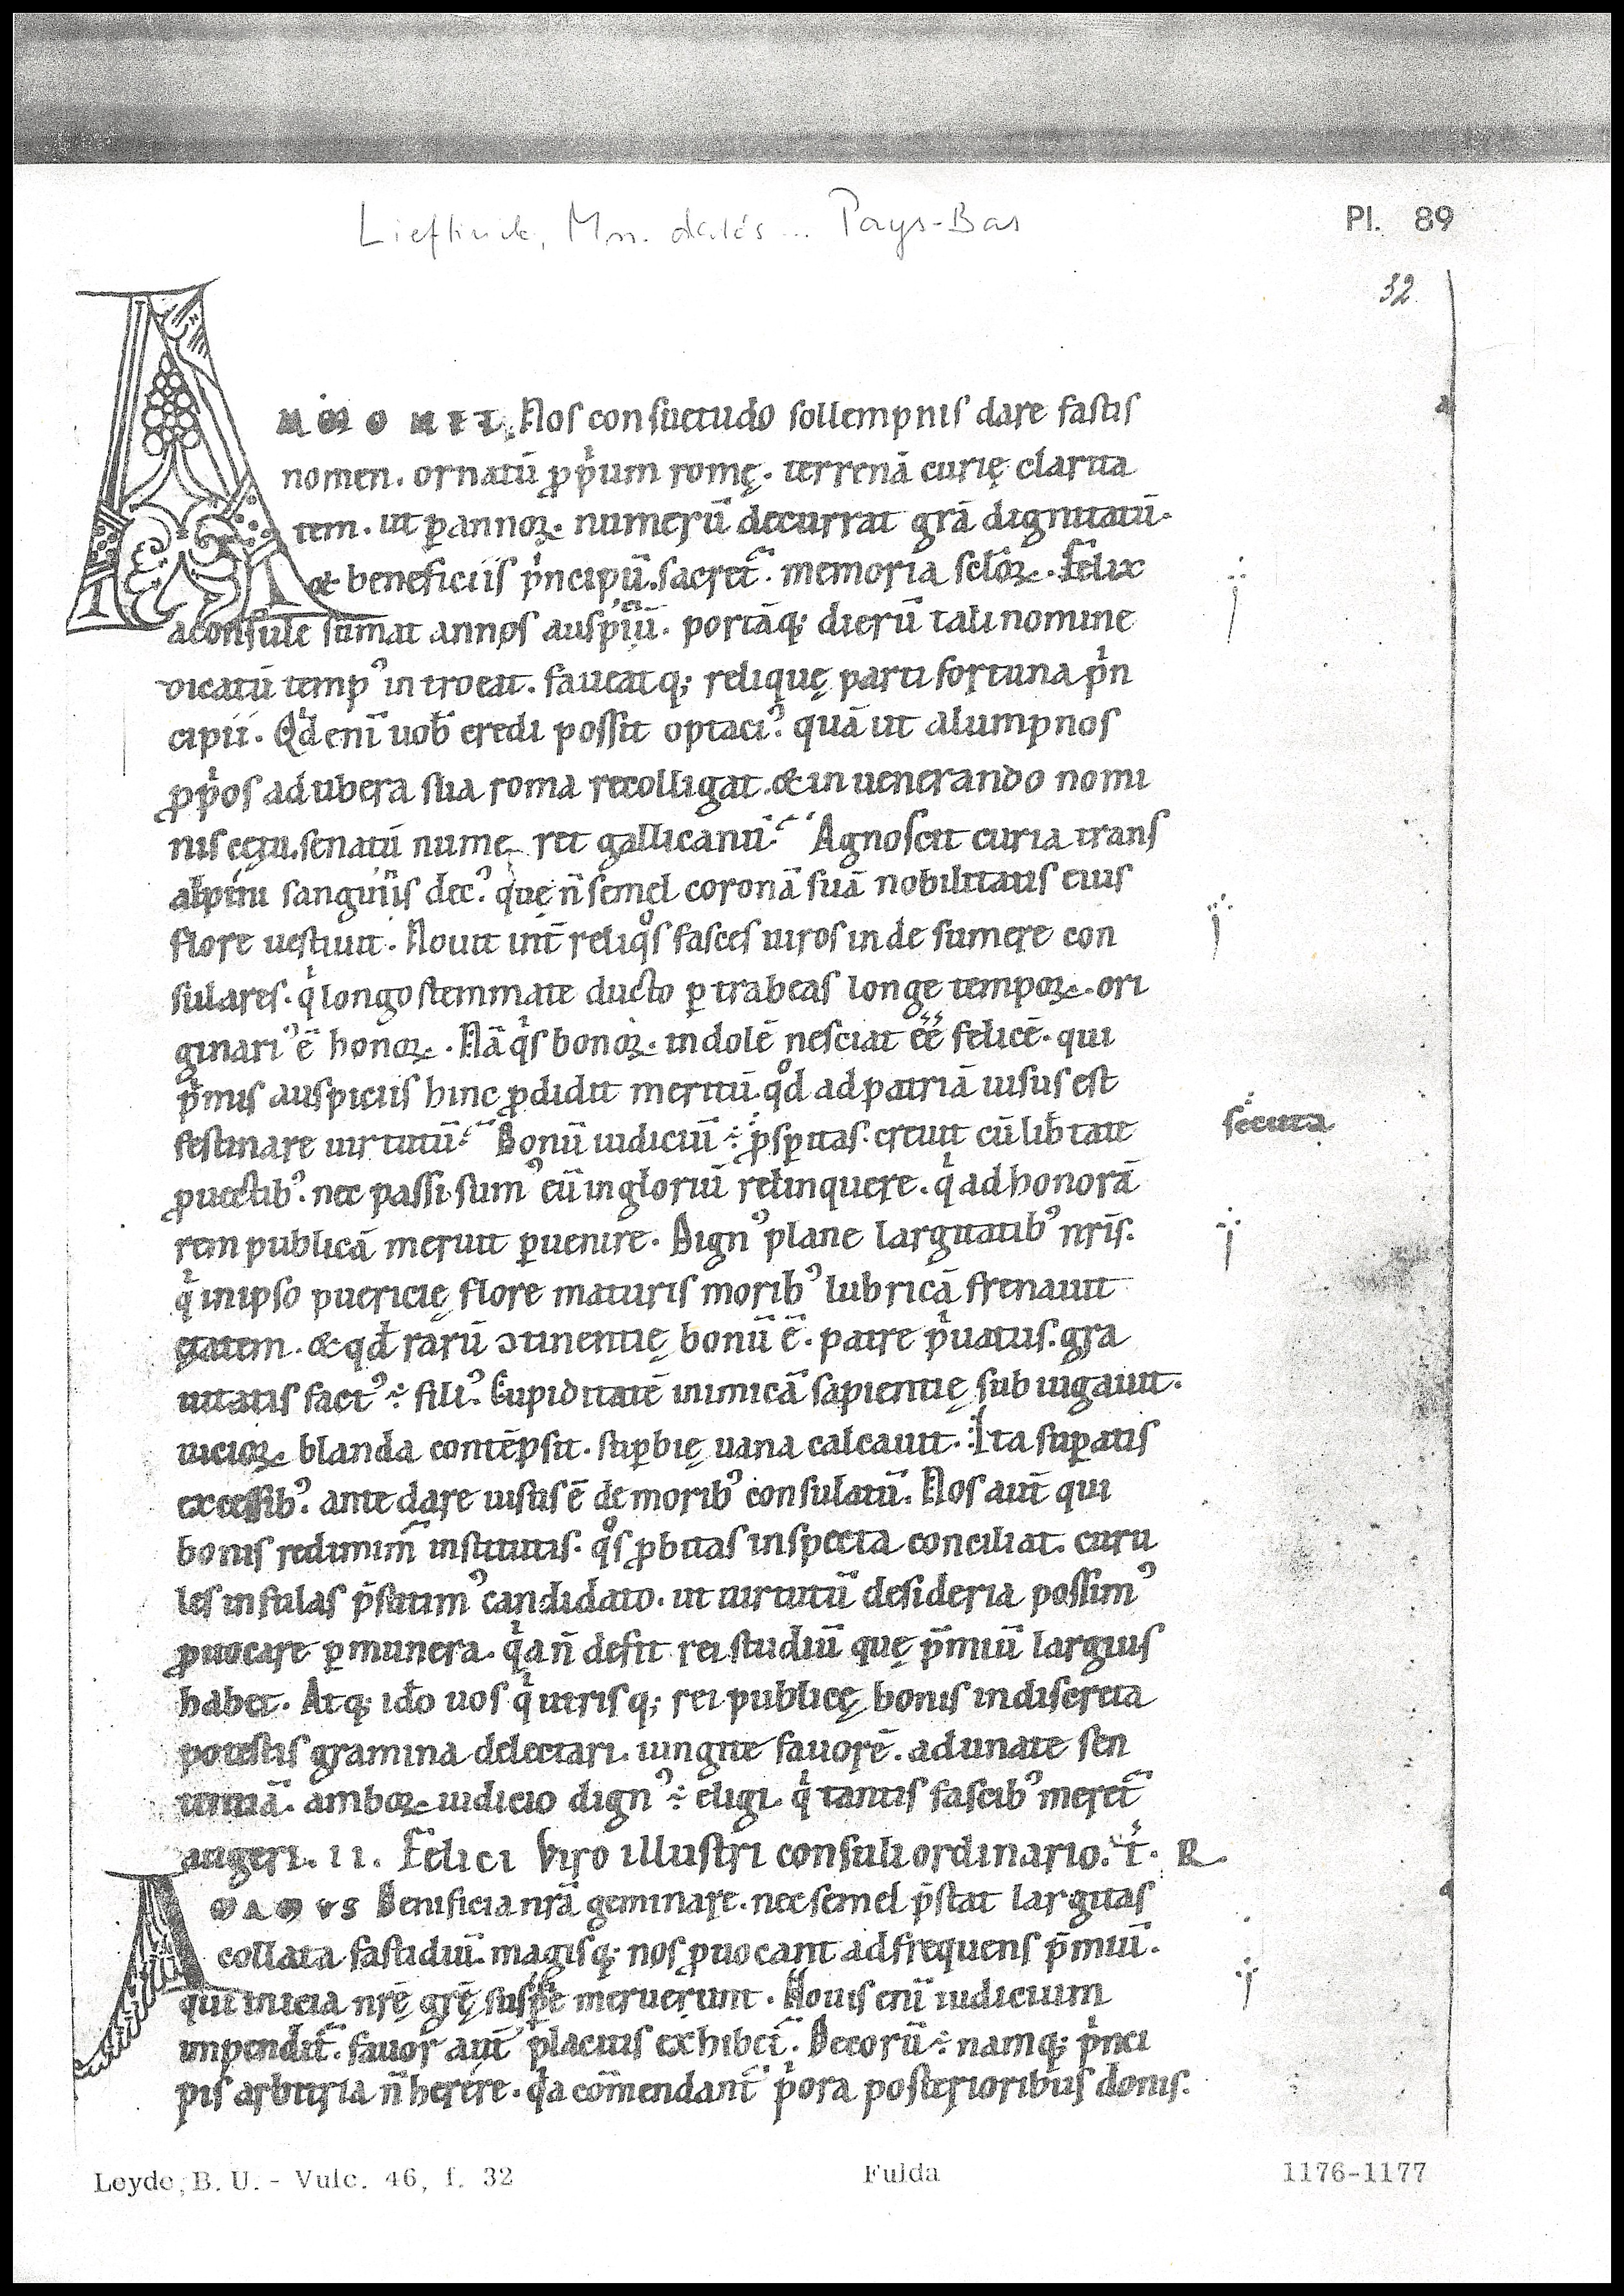 Lieftinck, Mn. datés... Pays-Bas
Pl. 89
32
AMMONET. Nos consuetudo sollempnis dare fastis
nomen. ornatū ꝓpͥum romę. terrenā curię clarita
tem. ut ꝑ annoꝝ. numerū decurrat grā dignitatū.
& beneficiis pͥncipū. sacret᷒. memoria sclōꝝ. Felix
a consule sumat annos auspiū. portāq; dierū tali nomine
dicatū tempꝰ introeat. faueatq; reliquę parti fortuna pͥn
cipii. Qd enī uob̄ credi possit optaciꝰ. quā ut alumpnos
ꝓpͥos ad ubera sua roma recolligat. & in uenerando nomi
nis cętu. senatū numę ret gallicanū. Agnoscit curia trans
alpini sanguīis decꝰ. quę n̄ semel coronā suā nobilitatis eius
flore uestiuit. Nouit int̄ reliqͦs fasces uiros inde sumere con
sulares. qͥ longo stemmate ducto ꝑ trabeas longe tempoꝝ. ori
ginariꝰ ē honoꝝ. Nā qͥs bonoꝝ. indolē nesciat ēē felicē. qui
pͥmis auspiciis hinc ꝓdidit meritū. qͦd ad patriā uisus est
festinare uirtutū. Bonū iudiciū ÷ ꝓsꝑitas. creuit cū lib̄tate
secuta
ꝓuectibꝰ. nec passi sumꝰ eū ingloriū relinquere. qͥ ad honorā
rem publicā meruit ꝑuenire. Dignꝰ plane largitatibꝰ nr̄is.
qͥ in ipso puericię flore maturis moribꝰ lubricā frenauit
ętatem. & qd̄ rarū ↄtinentię bonū ē. patre pͥuatus. gra
uitatis factꝰ ÷ filiꝰ. Cupiditatē inimicā sapientię subiugauit.
uicioꝝ blanda contēpsit. suꝑbię uana calcauit. Ita suꝑatis
excessibꝰ. ante dare uisus ē de moribꝰ consulatū. Nos aut̄ qui
bonis redimim᷒ institutis. qͦs ꝓbitas inspecta conciliat. curu
les infulas p̄stitimꝰ candidato. ut uirtutū desideria possimꝰ
ꝓuocare ꝑ munera. qͥa n̄ desit rei studiū quę p̄miū largius
habet. Atq; id̄o uos qͥ utrisq; rei publicę bonis indiscreta
potestis gramina delectari. iungite fauorē. adunate sen
tentiā. amboꝝ iudicio dignꝰ ÷ eligi. qͥ tantis fascibꝰ meret᷒
augeri. II. Felici Viro illustri consuli ordinario. T. R.
AMAMUS Benificia nr̄a geminare. nec semel p̄stat largitas
collata fastidiū. magisq; nos ꝓuocant ad frequens p̄miū.
qui inicia nr̄ę gr̄ę suscipe meruerunt. Nouis enī iudicium
impendit᷒. fauor aut̄ placitis exhibet᷒. Decorū ÷ namq; pͥnci
pis arbitria n̄ herere. qͥa com̄endant᷒ pͥora posterioribus donis.
Leyde, B. U. - Vulc. 46, f. 32
Fulda
1176-1177